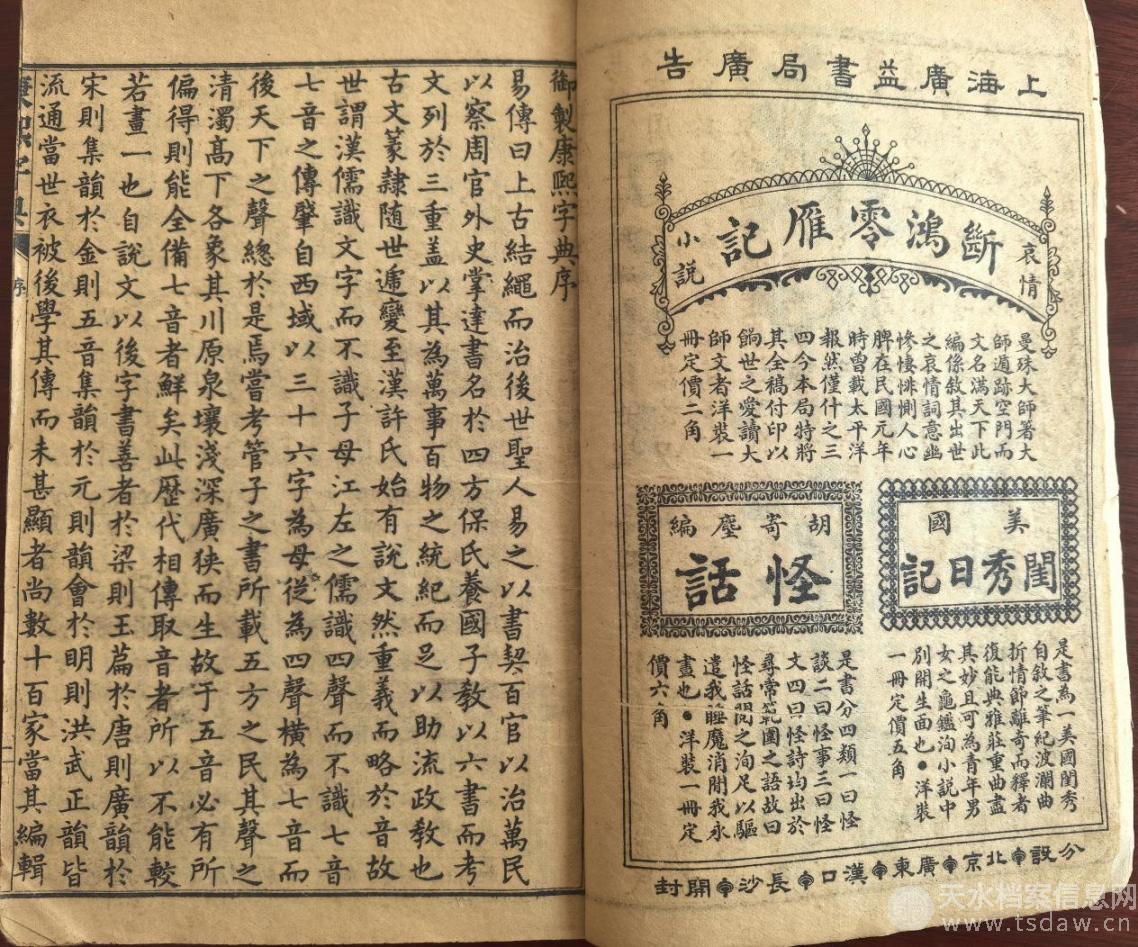 上海廣益書局廣告
哀情
斷鴻零雁記
小説
曼殊大師著大
師遁跡空門而
文名滿天下此
編係敘其出世
之哀情詞意幽
慘悽悱惻人心
脾在民國元年
時曾載太平洋
報然僅什之三
四今本局特將
其全稿付印以
餉世之愛讀大
師文者洋裝一
冊定價二角
美國
閨秀日記
是書為一美國閨秀
自敘之筆紀波瀾曲
折情節離奇而釋者
復能典雅莊重曲盡
其妙且可為青年男
女之龜鑑洵小說中
別開生面也●洋裝
一冊定價五角
胡寄塵編
怪話
是書分四類一曰怪
談二曰怪事三曰怪
文四曰怪詩均出於
尋常範圍之語故曰
怪話閱之洵足以驅
遣我睡魔消閒我永
晝也●洋裝一冊定
價六角
分設 北京 廣東 漢口 長沙 開封
御製康熙字典序
易傳曰上古結繩而治後世聖人易之以書契百官以治萬民
以察周官外史掌達書名於四方保氏養國子教以六書而考
文列於三重蓋以其為萬事百物之統紀而足以助流政教也
古文篆隷随世遞變至漢許氏始有説文然重義而略於音故
世謂漢儒識文字而不識子母江左之儒識四聲而不識七音
七音之傳肇自西域以三十六字為母從為四聲橫為七音而
後天下之聲總於是焉嘗考管子之書所載五方之民其聲之
清濁高下各象其川原泉壤淺深廣狹而生故于五音必有所
偏得則能全備七音者鮮矣此歴代相傳取音者所以不能較
若畫一也自說文以後字書善者於梁則玉篇於唐則廣韻於
宋則集韻於金則五音集韻於元則韻會於明則洪武正韻皆
流通當世衣被後學其傳而未甚顯者尚數十百家當其編輯
康熙字典 序
天水档案信息网
www.tsdaw.cn